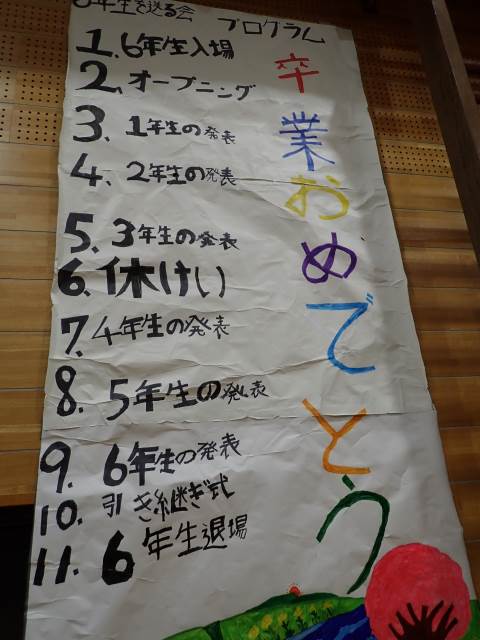 6年生を送る会 プログラム
1. 6年生入場
2. オープニング
3. 1年生の発表
4. 2年生の発表
5. 3年生の発表
6. 休けい
7. 4年生の発表
8. 5年生の発表
9. 6年生の発表
10. 引き継ぎ式
11. 6年生退場
卒業おめでとう